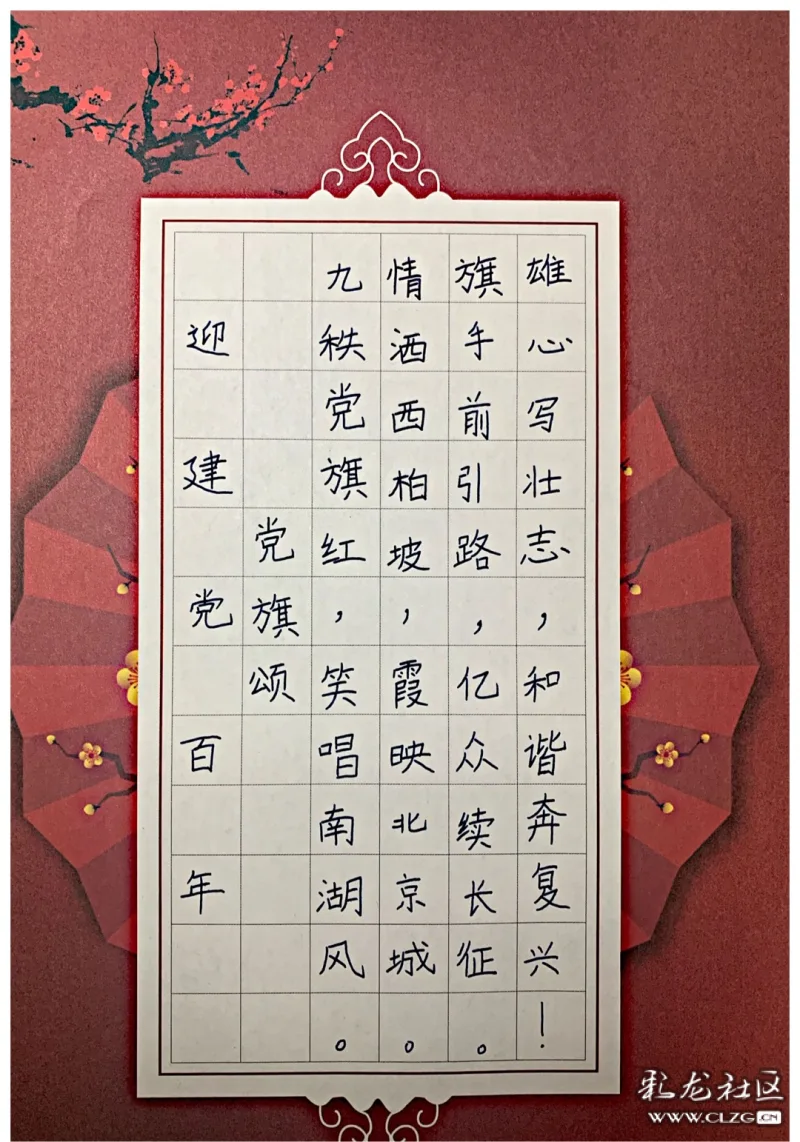 迎建党百年
党旗颂
九秩党旗红，笑唱南湖风。
情洒西柏坡，霞映北京城。
旗手前引路，亿众续长征。
雄心写壮志，和谐奔复兴！
彩龙社区
WWW.CLZG.CN